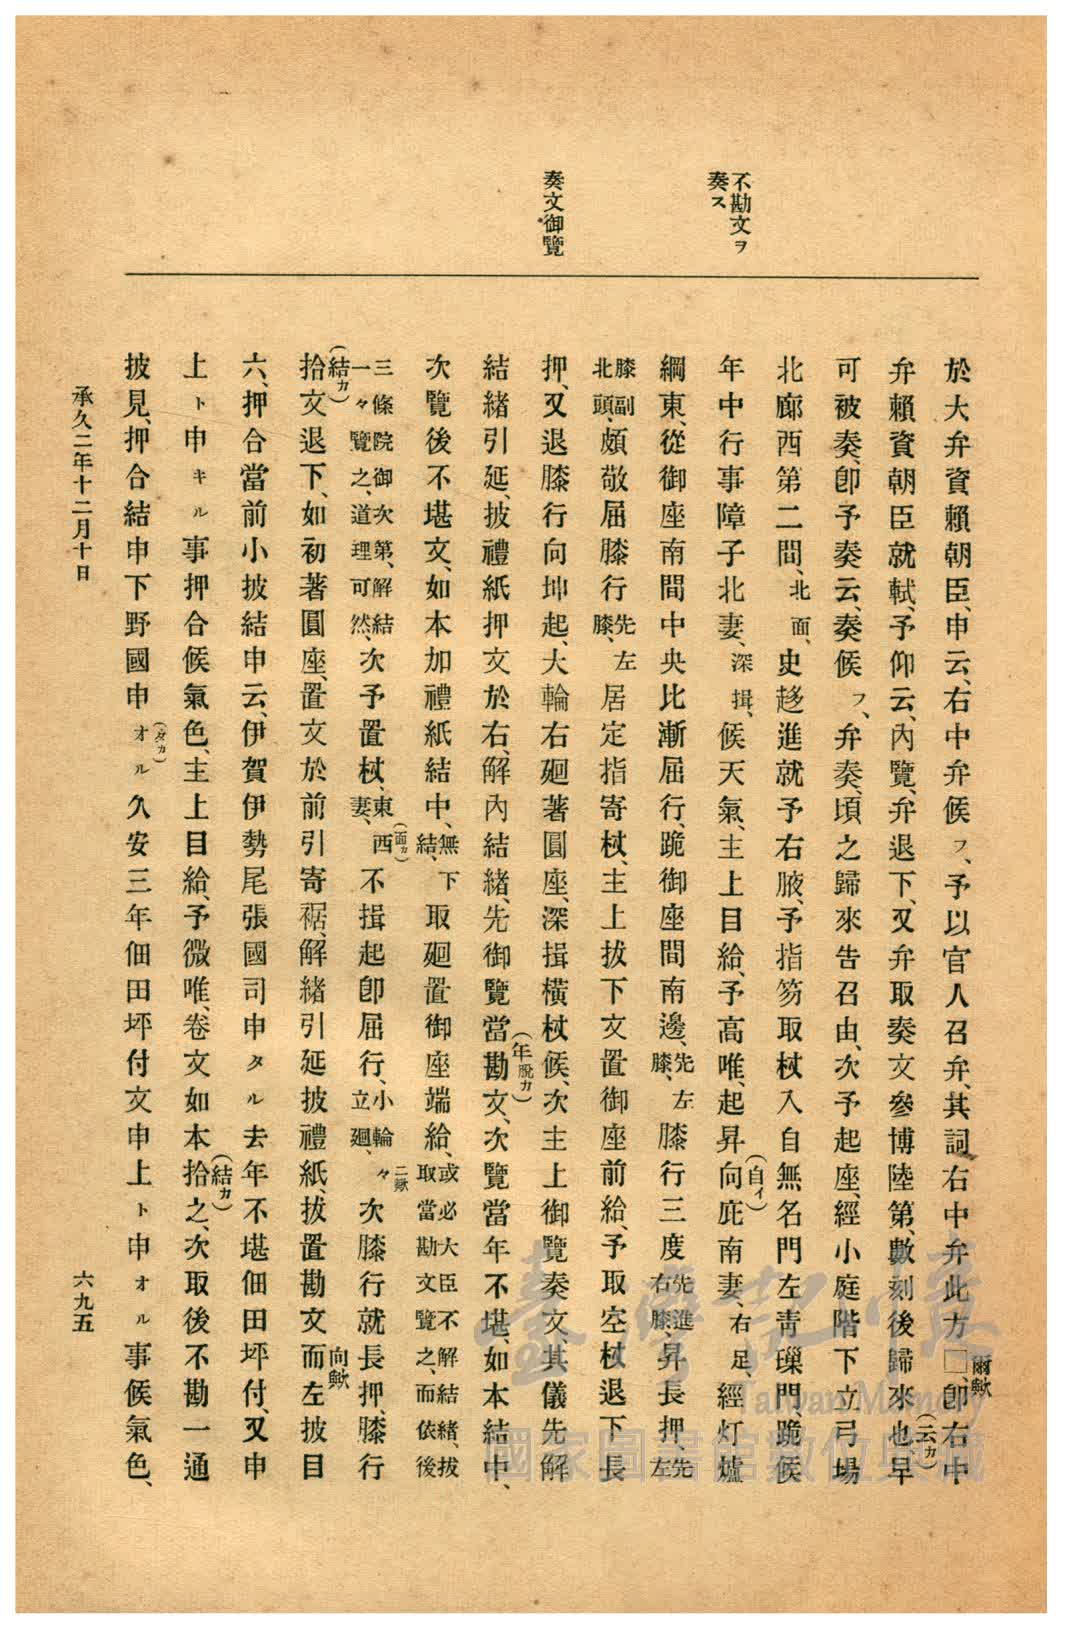 不勘文ヲ
奏ス
奏文御覽
於大弁資賴朝臣、申云、右中弁候フ、予以官人召弁、其詞右中弁此方□、卽右中
爾歟
弁賴資朝臣就軾、予仰云、內覽、弁退下、又弁取奏文參博陸第、數刻後歸來也、早
(云カ)
可被奏、卽予奏云、奏候フ、弁奏、頃之歸來告召由、次予起座、經小庭階下立弓場
北廊西第二間、北面、史趍進就予右腋、予指笏取杖入自無名門左靑璅門、跪候
年中行事障子北妻、深揖、候天氣、主上目給、予高唯、起昇向庇南妻、右足、經灯爐
(自イ)
綱東、從御座南間中央比漸屈行、跪御座間南邊、先左膝、膝行三度先進右膝、昇長押、先左
膝副北頭、頗敬屈膝行先左膝、居定指寄杖、主上拔下文置御座前給、予取空杖退下長
押、又退膝行向坤起、大輪右廻著圓座、深揖橫杖候、次主上御覽奏文、其儀先解
結緖引延、披禮紙押文於右、解內結緖、先御覽當勘文、次覽當年不堪、如本結中、
(年脫カ)
次覽後不堪文、如本加禮紙結中、無下結、取廻置御座端給、或必大臣不解結緖、拔取當勘文覽之、而依後
三條院御次第、解結一々覽之、道理可然、次予置杖、東西妻、不揖起卽屈行、小輪立廻、々次膝行就長押膝行
(面カ)
二歟
拾文退下、如初著圓座、置文於前引寄裾、解緖引延披禮紙、拔置勘文而左披目
(結カ)
向歟
六、押合當前小披結申云、伊賀伊勢尾張國司申タル去年不堪佃田坪付、又申
上ト申キル事押合候氣色、主上目給、予微唯、卷文如本拾之、次取後不勘一通
(結カ)
披見、押合結申下野國申オル久安三年佃田坪付文申上ト申オル事候氣色、
(タカ)
承久二年十二月十日
六九五
臺灣記憶
Taiwan Memory
國家圖書館數位典藏